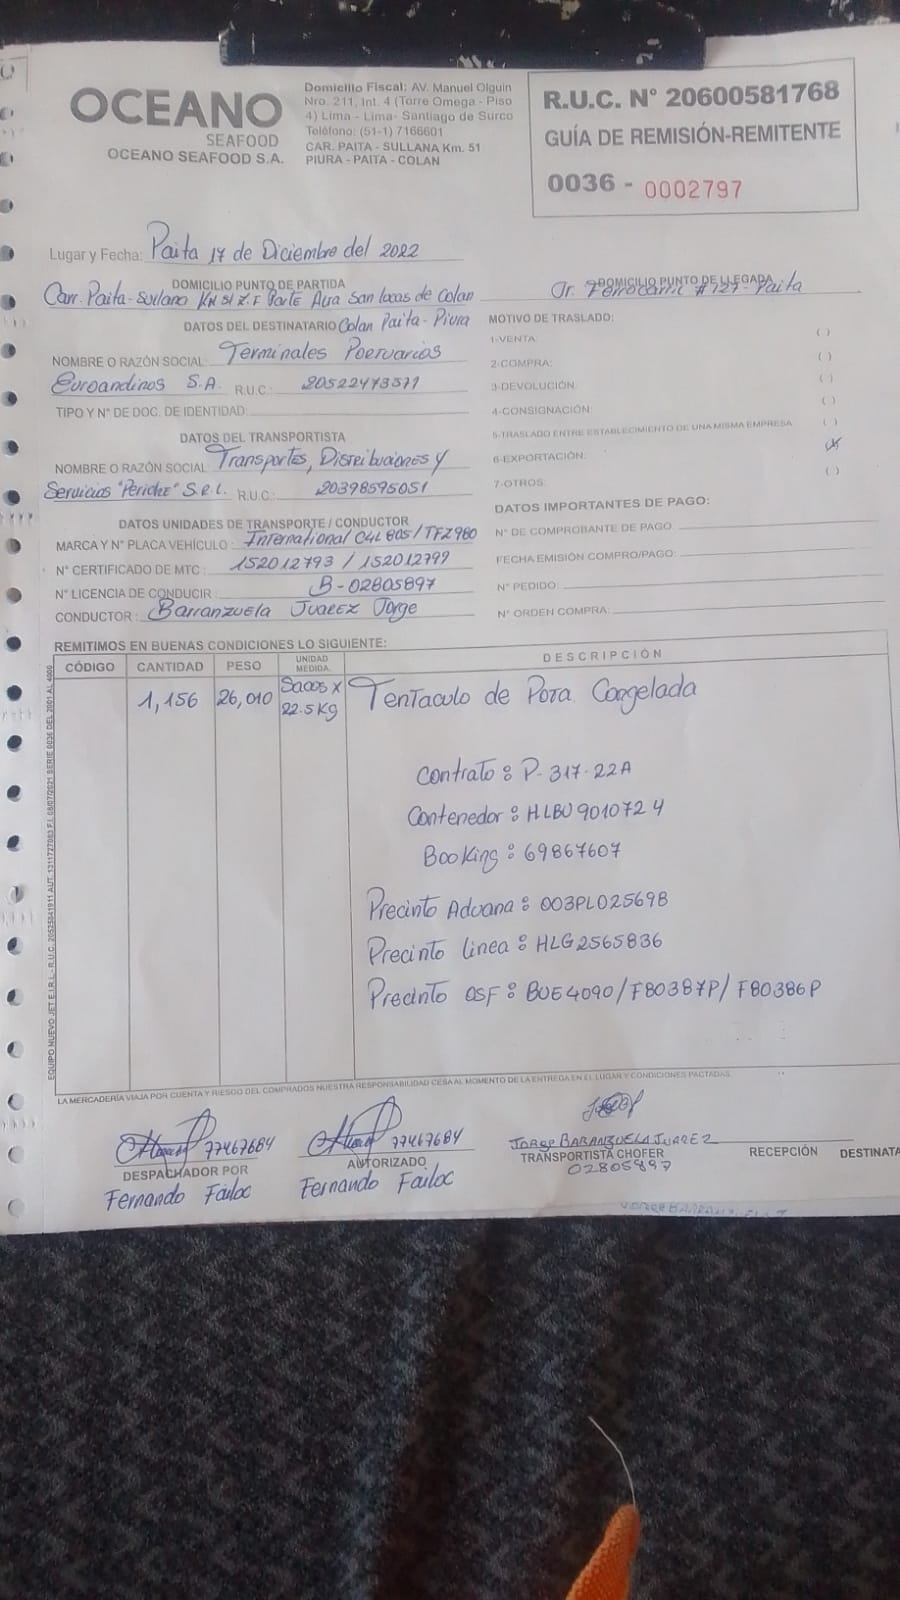 OCEANO
SEAFOOD
OCEANO SEAFOOD S.A.
Domicilio Fiscal: AV. Manuel Olguin
Nro. 211, Int. 4 (Torre Omega - Piso
4) Lima - Lima- Santiago de Surco
Teléfono: (51-1) 7166601
CAR. PAITA - SULLANA Km. 51
PIURA - PAITA - COLAN
R.U.C. N° 20600581768
GUÍA DE REMISIÓN-REMITENTE
0036 - 0002797
Lugar y Fecha: Paita 17 de Diciembre del 2022
DOMICILIO PUNTO DE PARTIDA
Carr. Paita-Sullana KM 51 Z.I Parte Alta San Lucas de Colan
Colan Paita - Piura
DOMICILIO PUNTO DE LLEGADA
Jr. Ferrocarril #127 - Paita
DATOS DEL DESTINATARIO
NOMBRE O RAZÓN SOCIAL: Terminales Portuarios
Euroandinos S.A. R.U.C.: 20522473571
TIPO Y N° DE DOC. DE IDENTIDAD:
DATOS DEL TRANSPORTISTA
NOMBRE O RAZÓN SOCIAL Transportes, Distribuciones y
Servicios "Periche" S.R.L. R.U.C.: 20398595051
DATOS UNIDADES DE TRANSPORTE / CONDUCTOR
MARCA Y N° PLACA VEHÍCULO: International C4L 805/TFZ980
N° CERTIFICADO DE MTC: 152012793 / 152012799
N° LICENCIA DE CONDUCIR: B-02805897
CONDUCTOR: Barranzuela Juarez Jorge
MOTIVO DE TRASLADO:
1-VENTA: ( )
2-COMPRA: ( )
3-DEVOLUCIÓN: ( )
4-CONSIGNACIÓN: ( )
5-TRASLADO ENTRE ESTABLECIMIENTO DE UNA MISMA EMPRESA ( )
6-EXPORTACIÓN: (X)
7-OTROS: ( )
DATOS IMPORTANTES DE PAGO:
N° DE COMPROBANTE DE PAGO
FECHA EMISIÓN COMPRO/PAGO:
N° PEDIDO:
N° ORDEN COMPRA:
REMITIMOS EN BUENAS CONDICIONES LO SIGUIENTE:
CÓDIGO CANTIDAD PESO UNIDAD MEDIDA. DESCRIPCIÓN
1,156 26,010 Sacos x 22.5 Kg Tentaculo de Pota Congelada
Contrato: P-317-22A
Contenedor: HLBU 9010724
Booking: 69867607
Precinto Aduana: 003PL025698
Precinto linea: HLG2565836
Precinto OSF: BUE4090/F80387P/F80386P
LA MERCADERÍA VIAJA POR CUENTA Y RIESGO DEL COMPRADOS NUESTRA RESPONSABILIDAD CESA AL MOMENTO DE LA ENTREGA EN EL LUGAR Y CONDICIONES PACTADAS.
77467684
DESPACHADOR POR
Fernando Failoc
77467684
AUTORIZADO
Fernando Failoc
JORGE BARANZUELA JUAREZ
TRANSPORTISTA CHOFER
02805897
RECEPCIÓN DESTINATA